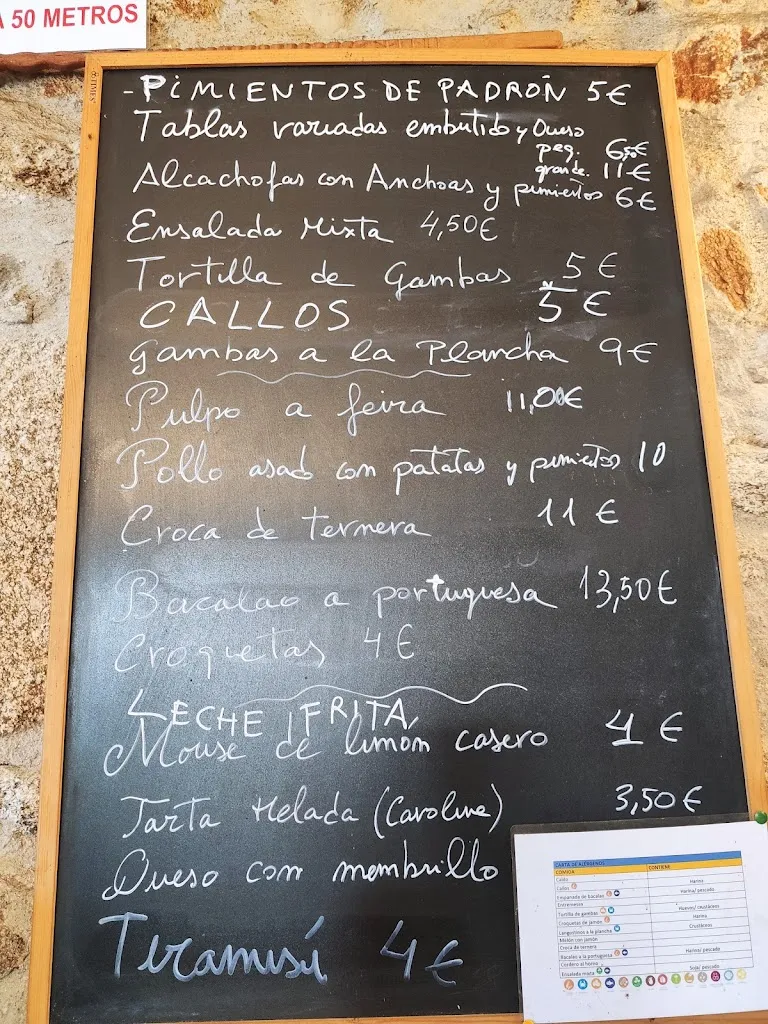 A 50 METROS
- PIMIENTOS DE PADRÓN 5€
Tablas variadas embutido y Queso
peq. 6,50€
grande. 11€
Alcachofas con Anchoas y pimientos 6€
Ensalada Mixta 4,50€
Tortilla de Gambas 5€
CALLOS 5€
Gambas a la Plancha 9€
Pulpo a feira 11,00€
Pollo asado con patatas y pimientos 10
Croca de ternera 11€
Bacalao a portuguesa 13,50€
Croquetas 4€
LECHE FRITA
Mouse de limón casero 4€
Tarta Helada (Caroline) 3,50€
Queso con membrillo
Tiramisú 4€
CARTA DE ALERGENOS
COMIDA CONTIENE
Caldo
Callos Harina
Empanada de bacalao Harina/ pescado
Entremeses
Tortilla de gambas Huevos/ crustáceos
Croquetas de jamón Harina
Langostinos a la plancha Crustáceos
Melón con jamón
Croca de ternera
Bacalao a la portuguesa Harina/ pescado
Cordero al horno
Ensalada mixta Soja/ pescado